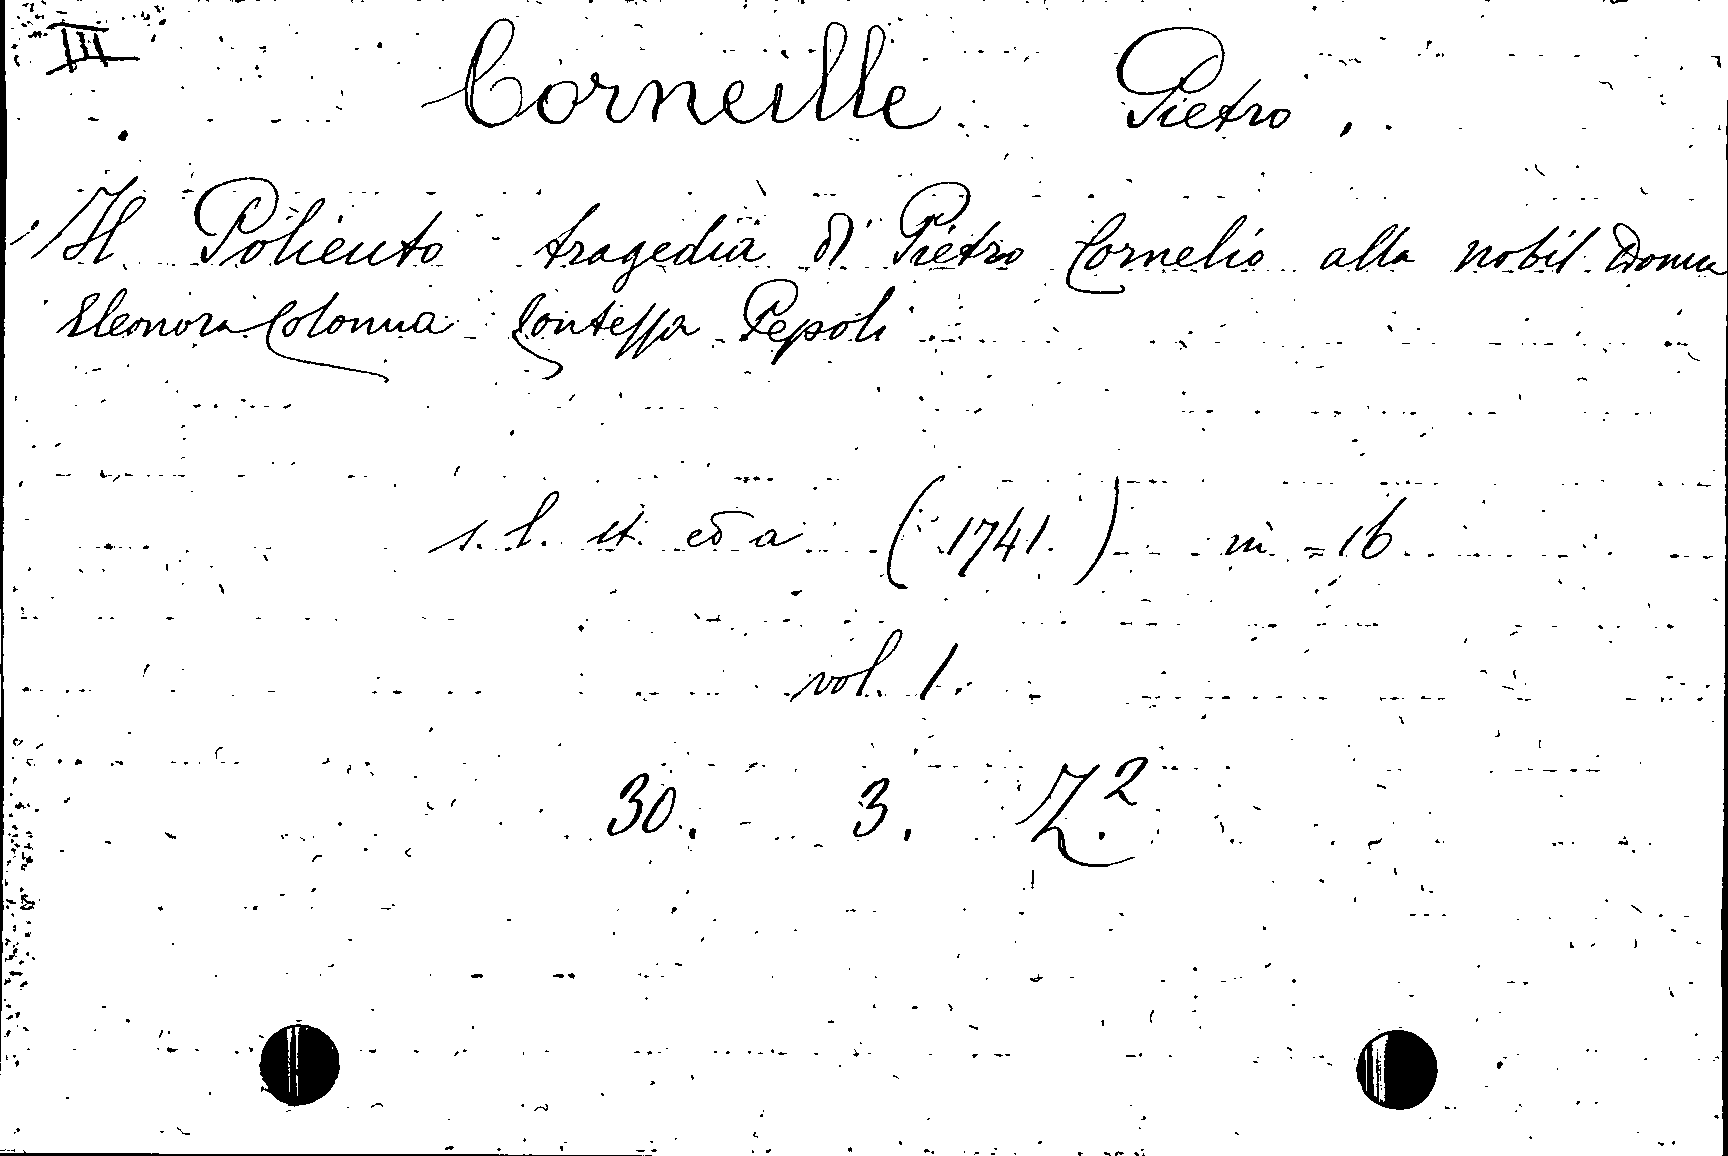 III
Corneille Pietro.
Il Poliento tragedia di Pietro Cornelio alla nobil Donna
Eleonora Colonna Contessa Pepoli
s. l. st. ed a (1741.) in =16
vol. 1.
30. 3. Z.²